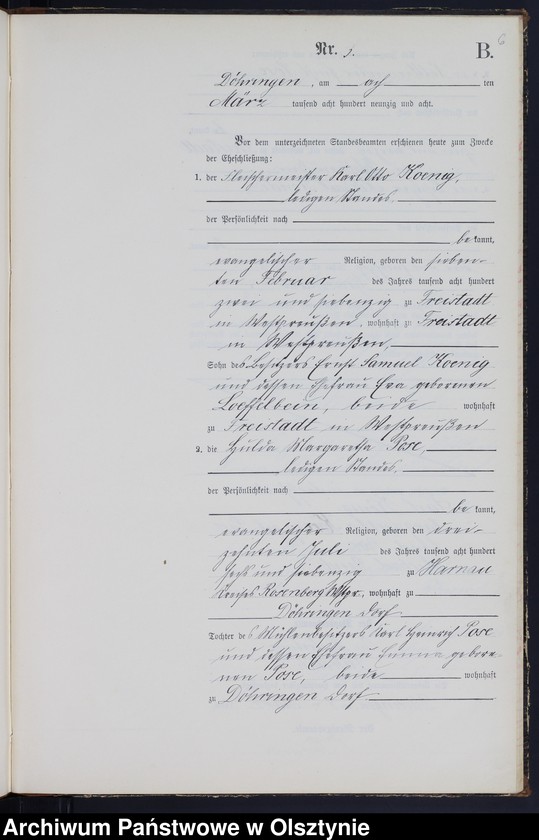 6
Nr. 3.
B.
Döhringen, am ach ten
März tausend acht hundert neunzig und acht.
Vor dem unterzeichneten Standesbeamten erschienen heute zum Zwecke
der Eheschließung:
1. der Fleischermeister Karl Otto Koenig,
ledigen Standes,
der Persönlichkeit nach
be kannt,
evangelischer Religion, geboren den sieben-
ten Februar des Jahres tausend acht hundert
zwei und siebenzig zu Freistadt
in Westpreußen, wohnhaft zu Freistadt
in Westpreußen,
Sohn des Besitzers Ernst Samuel Koenig
und dessen Ehefrau Eva geborenen
Loeffelbein, beide wohnhaft
zu Freistadt in Westpreußen
2. die Hulda Margaretha Pose,
ledigen Standes,
der Persönlichkeit nach
be kannt,
evangelischer Religion, geboren den drei-
zehnten Juli des Jahres tausend acht hundert
sechs und siebenzig zu Harnau
Kreises Rosenberg Wstpr., wohnhaft zu
Döhringen Dorf
Tochter des Mühlenbesitzers Karl Heinrich Pose
und dessen Ehefrau Emma gebore-
nen Pose, beide wohnhaft
zu Döhringen Dorf
Archiwum Państwowe w Olsztynie